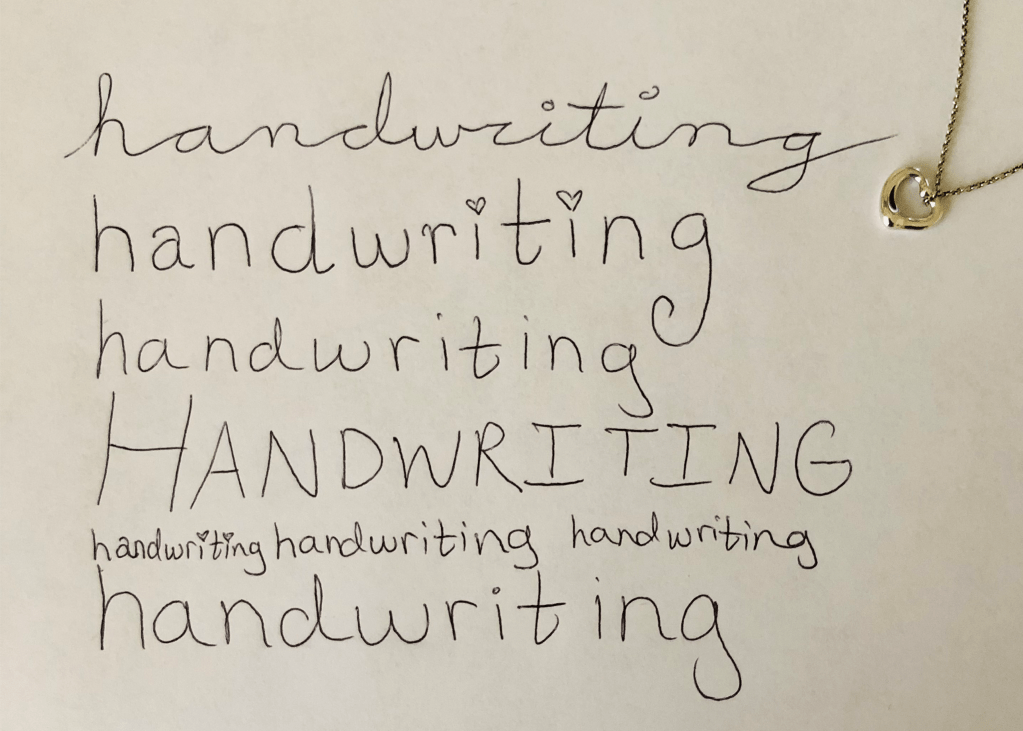 handwriting
handwriting
handwriting
HANDWRITING
handwriting handwriting handwriting
handwriting